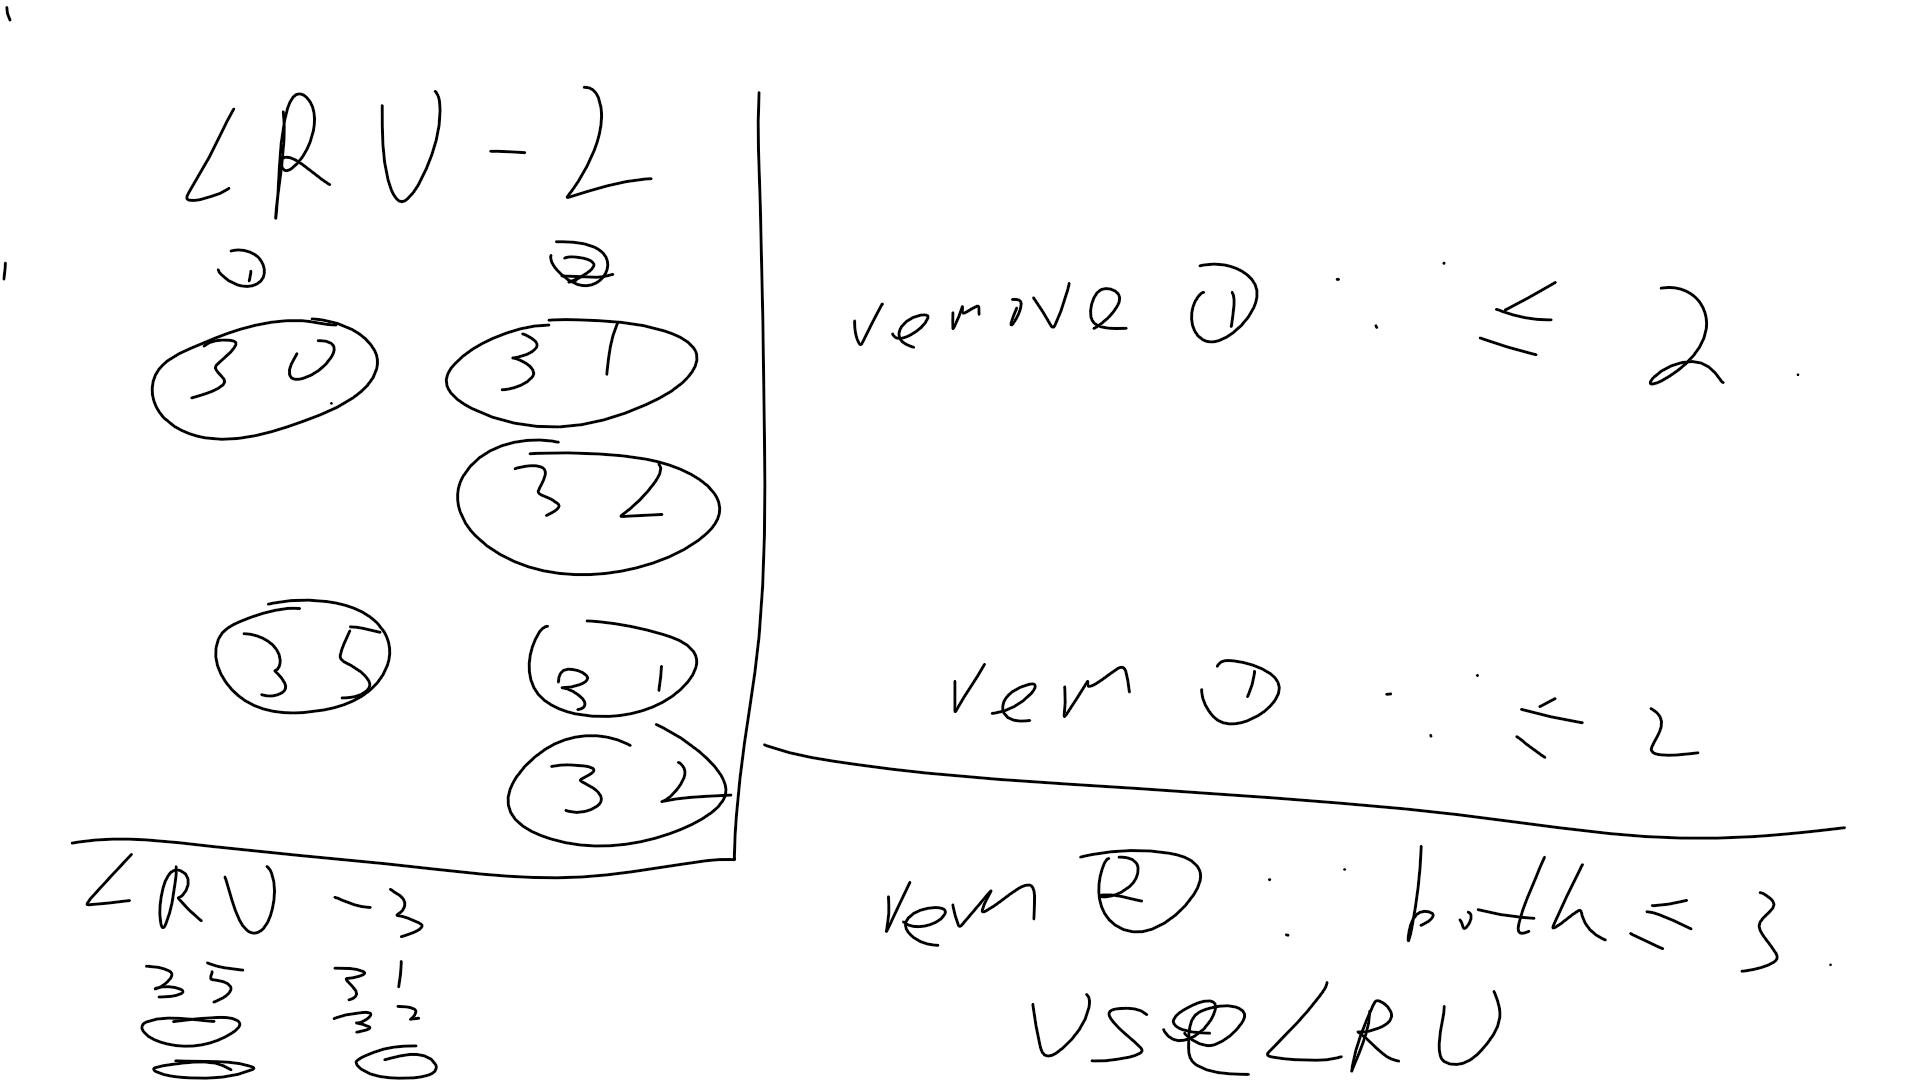 LRU-2
① ②
30 31
32
35 31
32
remove ① : ≤ 2
rem ① : ≤ 2
LRU-3
35 31
32
rem ② : both ≤ 3
use LRU